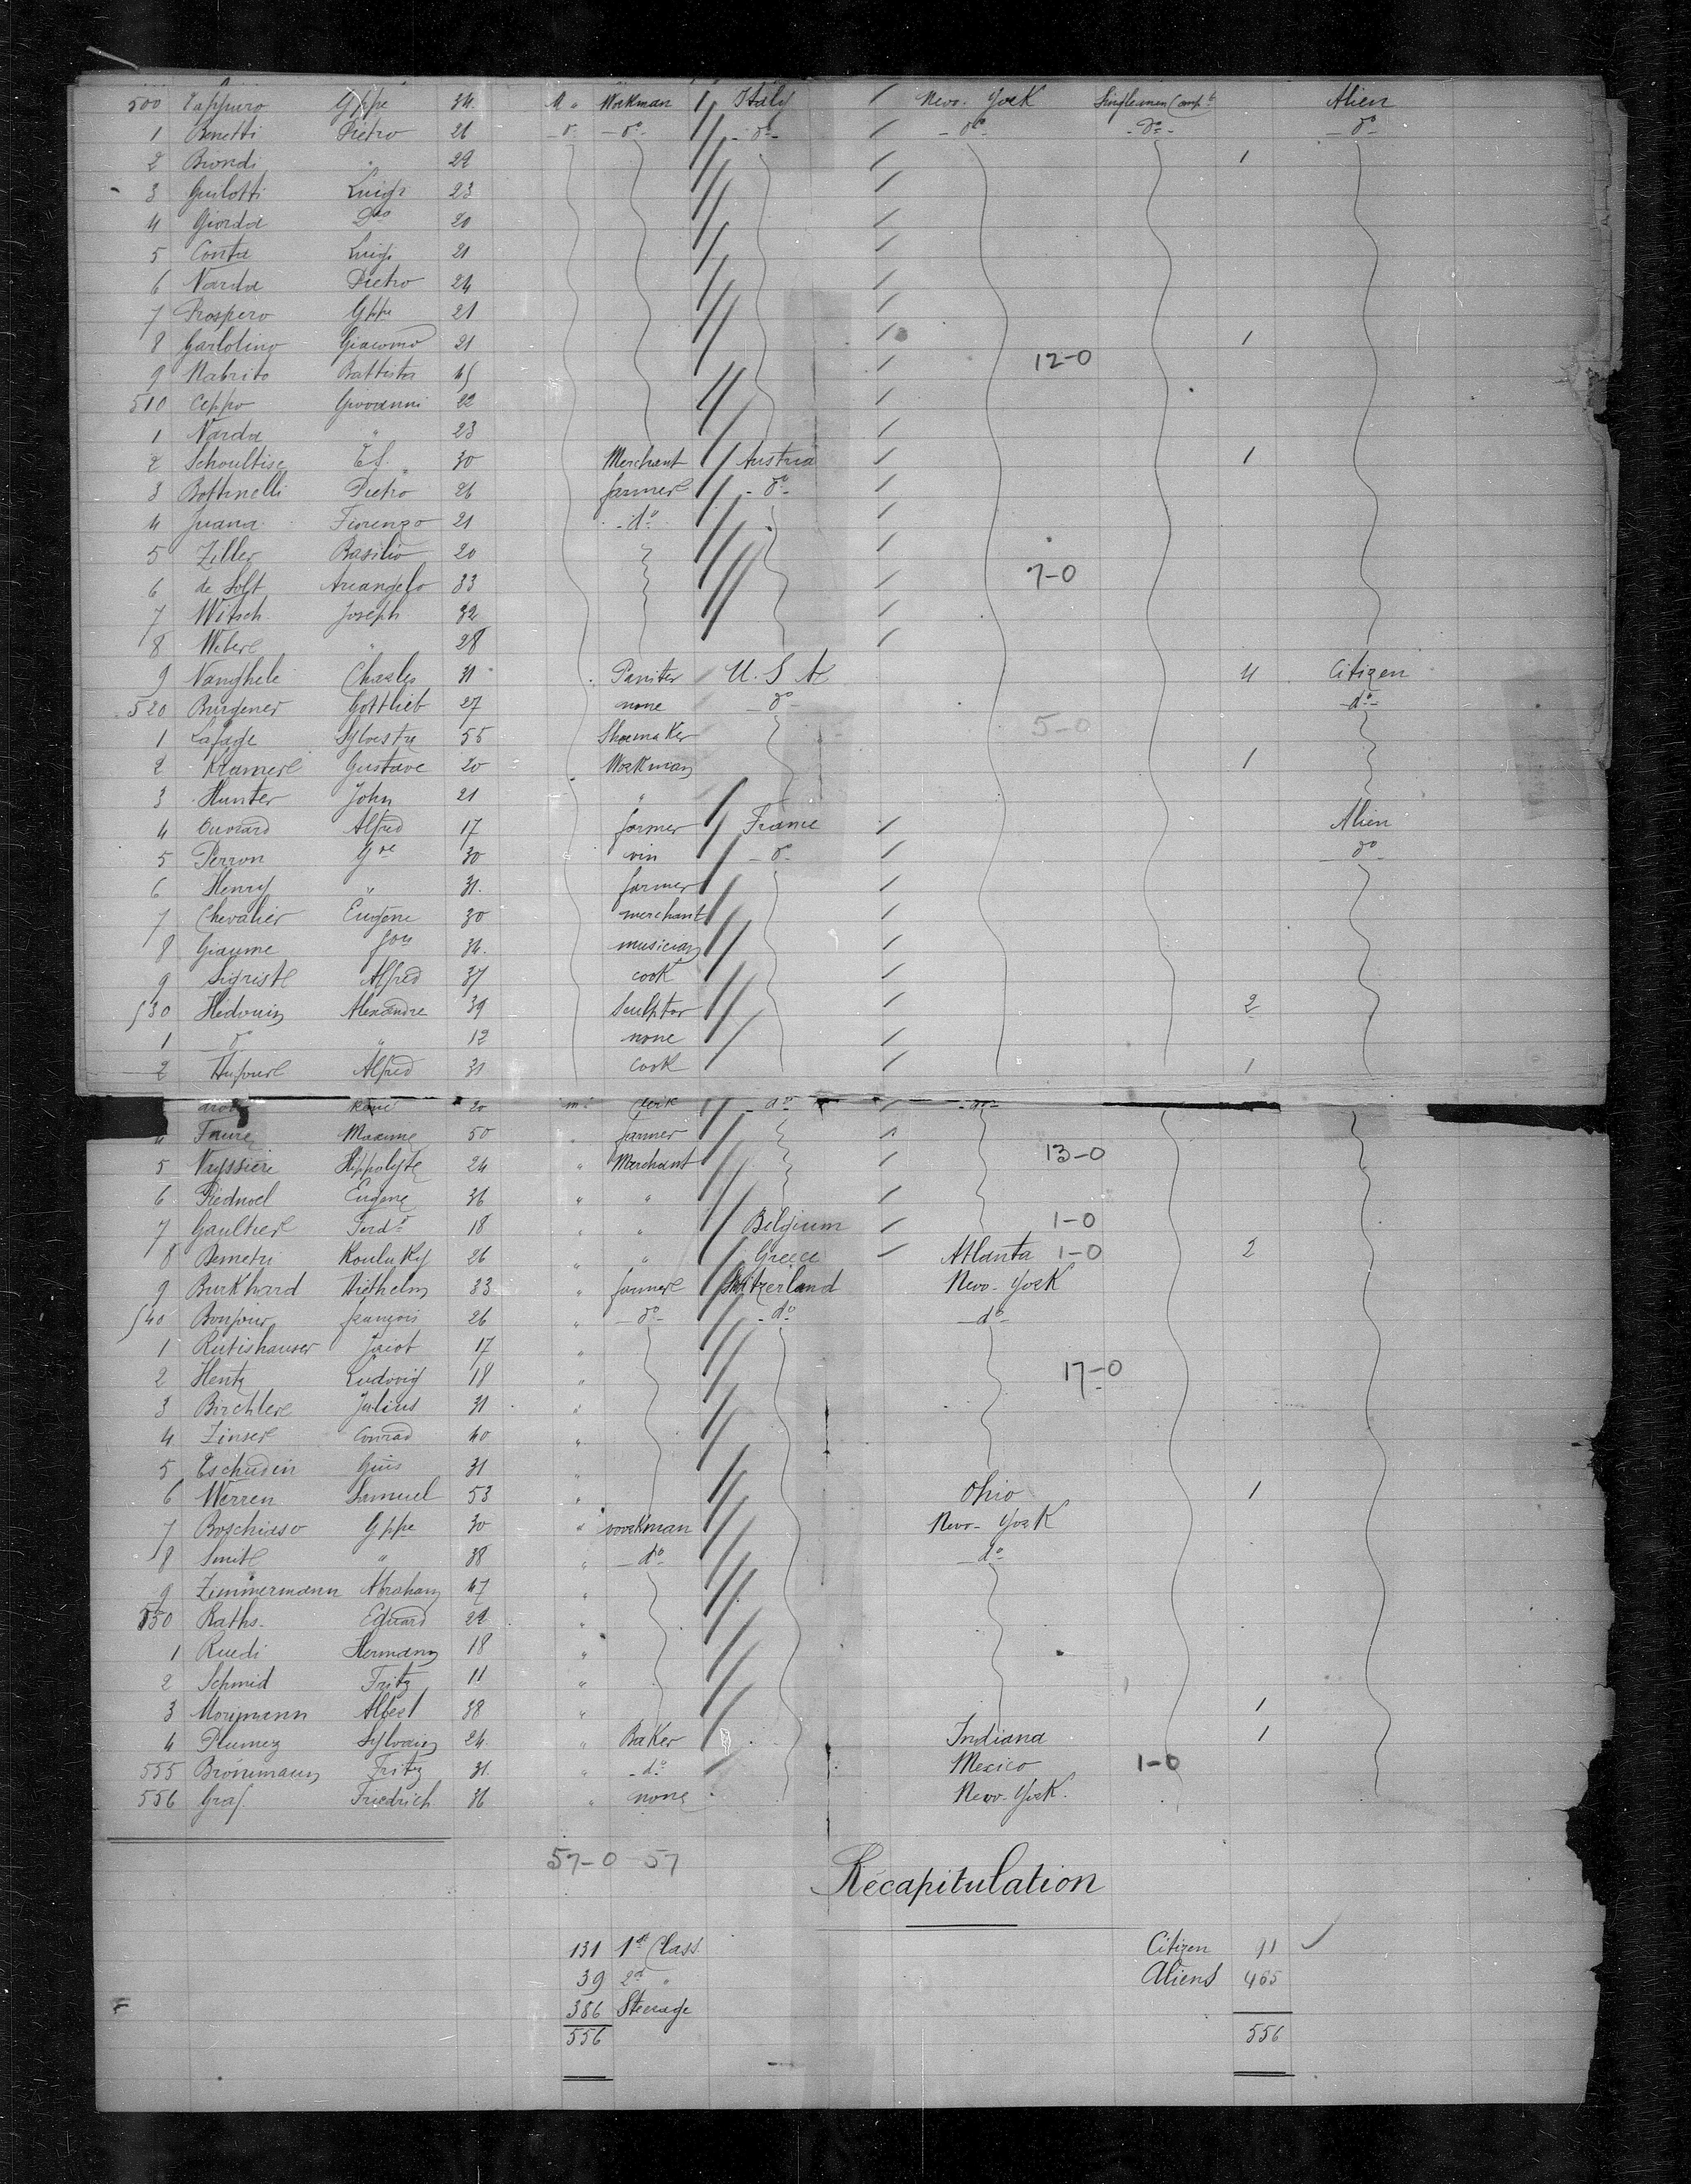 500 Vappuro Gppe 34. M " Workman Italy New-York Singlemen Compt Alien
1 Bonetti Pietro 21 do do do do do do
2 Biondi " 22 1
3 Guilotti Luigi 23
4 Giorda Dco 20
5 Conta Luigi 21
6 Narda Pietro 24
7 Prospero Gppe 21
8 Garlolino Giacomo 21 1
12-0
9 Nabrito Battista 45
510 Ceppo Giovanni 22
1 Narda " 23
2 30 Merchant Austria 1
3 Bottinelli Pietro 26 farmer do
4 Juana Fiorenzo 21 do
5 Ziller Basilio 20
7-0
6 de Solt Arcangelo 33
7 Witsch Joseph 32
8 Weber " 28
9 Nanghele Charles 31 Painter U.S A 4 Citizen
520 Burgener Gottlieb 27 none do do
5-0
1 Lafage Sylvestre 55 Shoemaker
2 Kramer Gustave 20 Workman 1
3 Hunter John 21 "
4 Alfred 17 farmer France Alien
5 Perron Gve 30 vin do do
6 Henry " 31. farmer
7 Chevalier Eugène 30 merchant
8 Giaume Jon 34. musician
9 Sigrist Alfred 37 cook
530 Hédouin Alexandre 39 Sculptor 2
1 do " 12 none
2 Alfred 31 cook 1
René 20 m. clerk do do
4 Faure Maxime 50 " farmer
13-0
5 Vayssière Hippolyte 24 " Merchant
6 Piednoel Eugène 36 " "
7 Gaultier Ferdd 18 " " Belgium 1-0
8 Demetri Kouluky 26 " " Greece Atlanta 1-0 2
9 Burkhard Diethelm 33 " farmer Switzerland New-York
540 Bonjour françois 26 " do do do
1 Rutishauser Jacot 17 "
17-0
2 Hentz Ludovig 18 "
3 Birchler Julius 31 "
4 Zinser Conrad 40 "
5 Tschudin Gus 31 "
6 Werren Samuel 53 " Ohio 1
7 Boschiaso Gppe 30 " workman New-York
8 " 38 " do do
9 Zimmermann Abraham 47 "
550 Raths Eduard 22 "
1 Ruedi Hermann 18 "
2 Schmid Fritz 11 "
3 Albert 38 " 1
4 Plumez Sylvain 24 " Baker Indiana 1
555 Brönimann Fritz 31 " do Mexico 1-0
556 Graf Friedrich 36 " none New-York.
57-0 57
Récapitulation
131 1st Class Citizen 91
39 2d " Aliens 465
386 Steerage
556 556